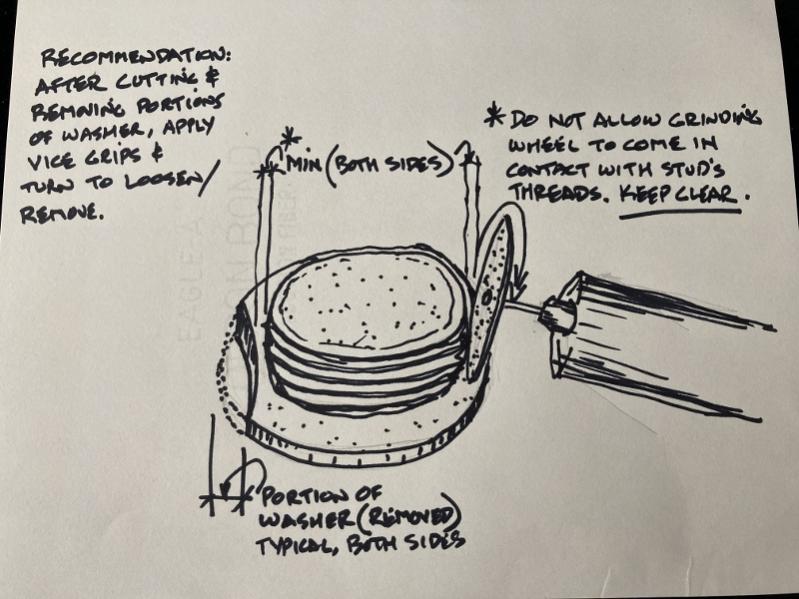 RECOMMENDATION:
AFTER CUTTING &
REMOVING PORTIONS
OF WASHER, APPLY
VICE GRIPS &
TURN TO LOOSEN/
REMOVE.
*
MIN (BOTH SIDES)
* DO NOT ALLOW GRINDING
WHEEL TO COME IN
CONTACT WITH STUD'S
THREADS. KEEP CLEAR.
PORTION OF
WASHER (REMOVED)
TYPICAL, BOTH SIDES
EAGLE-A
BOND